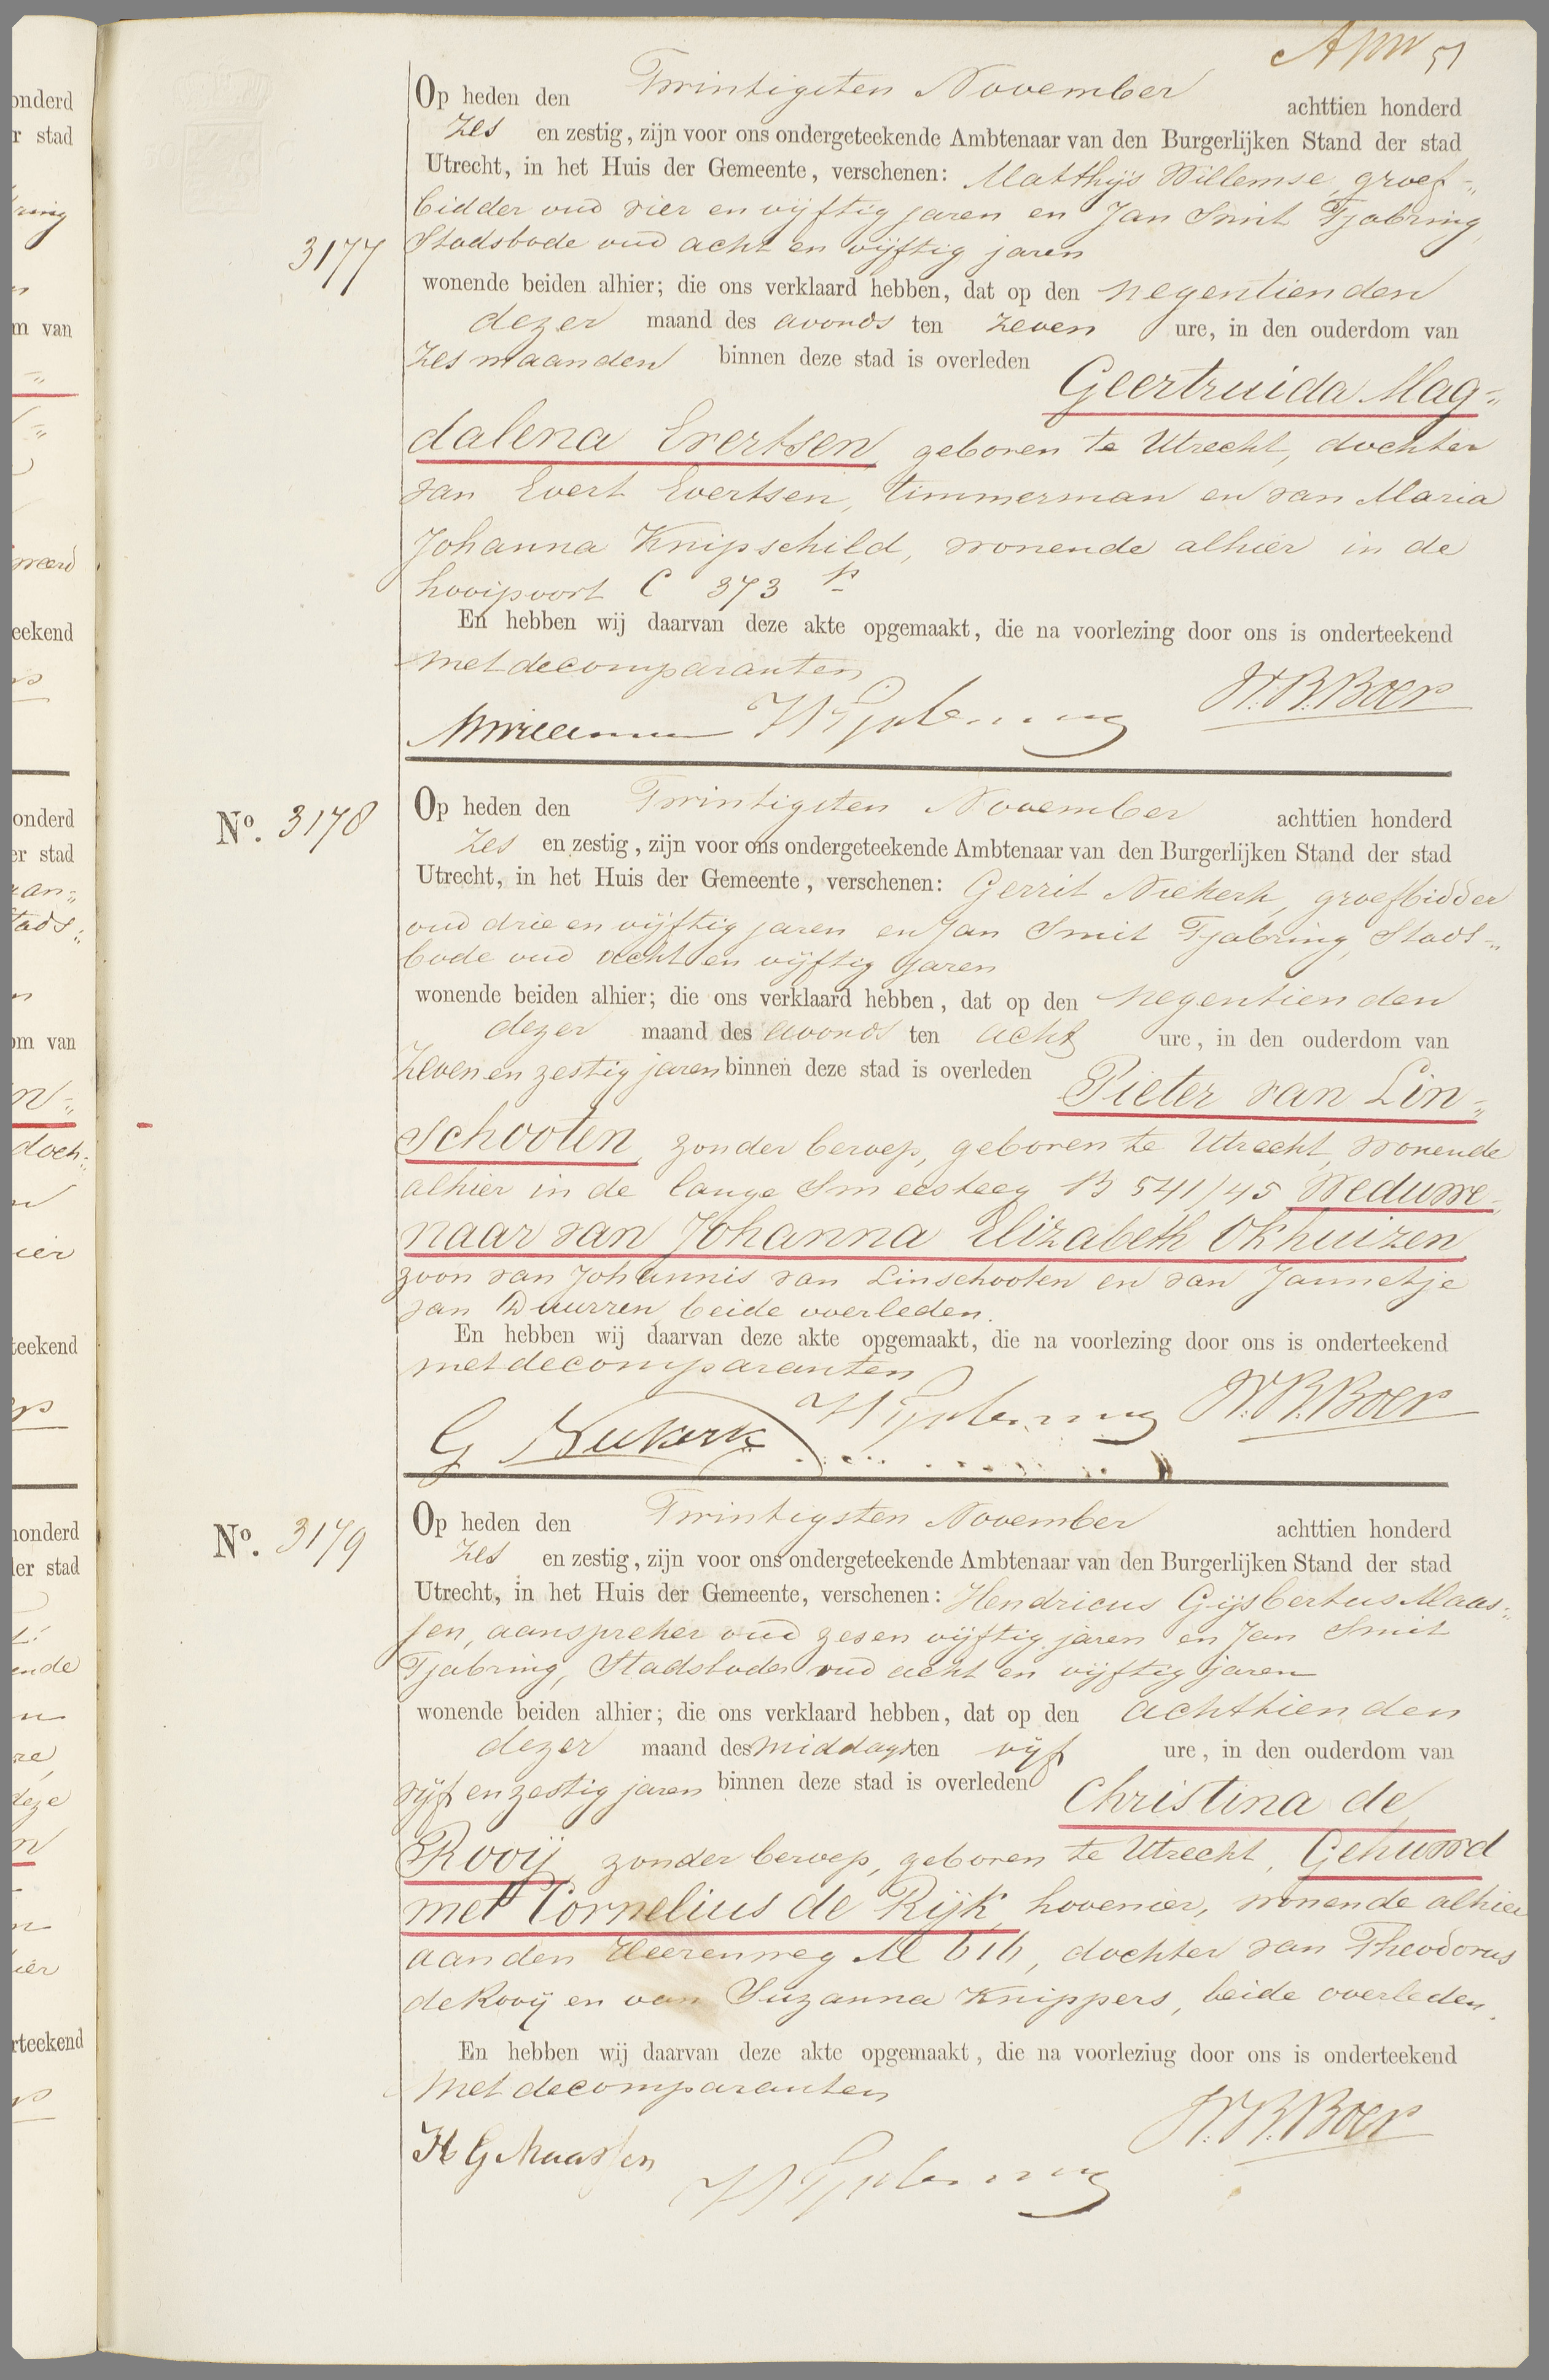 51
Op heden den Twintigsten November achttien honderd
Zes en zestig, zijn voor ons ondergeteekende Ambtenaar van den Burgerlijken Stand der stad
Utrecht, in het Huis der Gemeente, verschenen: Matthijs Willemse, groef-„
bidder oud vier en vijftig jaren en Jan Smit Tjabring,
3177
Stadsbode oud acht en vijftig jaren
wonende beiden alhier; die ons verklaard hebben, dat op den negentienden
dezer maand des avonds ten zeven ure, in den ouderdom van
zes maanden binnen deze stad is overleden
Geertruida Mag-„
dalena Evertsen, geboren te Utrecht, dochter
van Evert Evertsen, timmerman en van Maria
Johanna Knipschild, wonende alhier in de
hooipoort C 373
En hebben wij daarvan deze akte opgemaakt, die na voorlezing door ons is onderteekend
met de comparanten
W.B.Boer
No. 3178
Op heden den Twintigsten November achttien honderd
Zes en zestig, zijn voor ons ondergeteekende Ambtenaar van den Burgerlijken Stand der stad
Utrecht, in het Huis der Gemeente, verschenen: Gerrit Niekerk, groefbidder
oud drie en vijftig jaren en Jan Smit Tjabring, Stads-„
bode oud acht en vijftig jaren
wonende beiden alhier; die ons verklaard hebben, dat op den negentienden
dezer maand des avonds ten acht ure, in den ouderdom van
Zeven en zestig jaren binnen deze stad is overleden
Pieter van Lin-„
schooten, zonder beroep, geboren te Utrecht, wonende
alhier in de lange Smeesteeg B 541/45 Weduwe-„
naar van Johanna Elizabeth Okhuizen
zoon van Johannis van Linschooten en van Jannetje
van Duurren beide overleden.
En hebben wij daarvan deze akte opgemaakt, die na voorlezing door ons is onderteekend
met de comparanten
G Niekerk W.B.Boer
No. 3179
Op heden den Twintigsten November achttien honderd
Zes en zestig, zijn voor ons ondergeteekende Ambtenaar van den Burgerlijken Stand der stad
Utrecht, in het Huis der Gemeente, verschenen: Hendricus Gijsbertus Maas-„
sen, aanspreker oud zes en vijftig jaren en Jan Smit
Tjabring, Stadsbode oud acht en vijftig jaren
wonende beiden alhier; die ons verklaard hebben, dat op den achttienden
dezer maand des middags ten vijf ure, in den ouderdom van
vijf en zestig jaren binnen deze stad is overleden
Christina de
Rooij zonder beroep, geboren te Utrecht, Gehuwd
met Cornelius de Rijk, hovenier, wonende alhier
aan den Heerenweg M 616, dochter van Theodorus
de Rooij en van Suzanna Knippers, beide overleden.
En hebben wij daarvan deze akte opgemaakt, die na voorleziug door ons is onderteekend
met de comparanten
W.B.Boer
H G Maassen